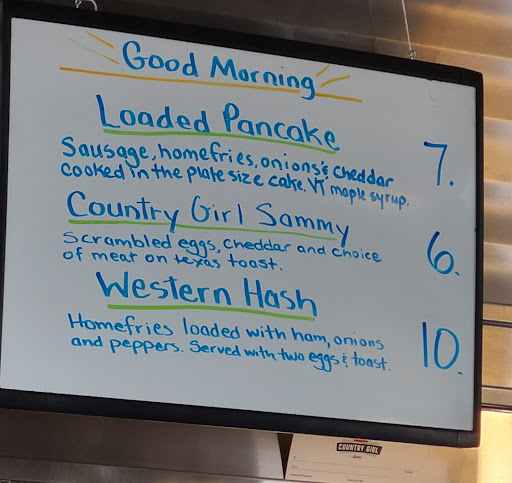 Good Morning
Loaded Pancake
Sausage, homefries, onions & cheddar
cooked in the plate size cake. VT maple syrup.
7.
Country Girl Sammy
Scrambled eggs, cheddar and choice
of meat on texas toast.
6.
Western Hash
Homefries loaded with ham, onions
and peppers. Served with two eggs & toast.
10.
COUNTRY GIRL